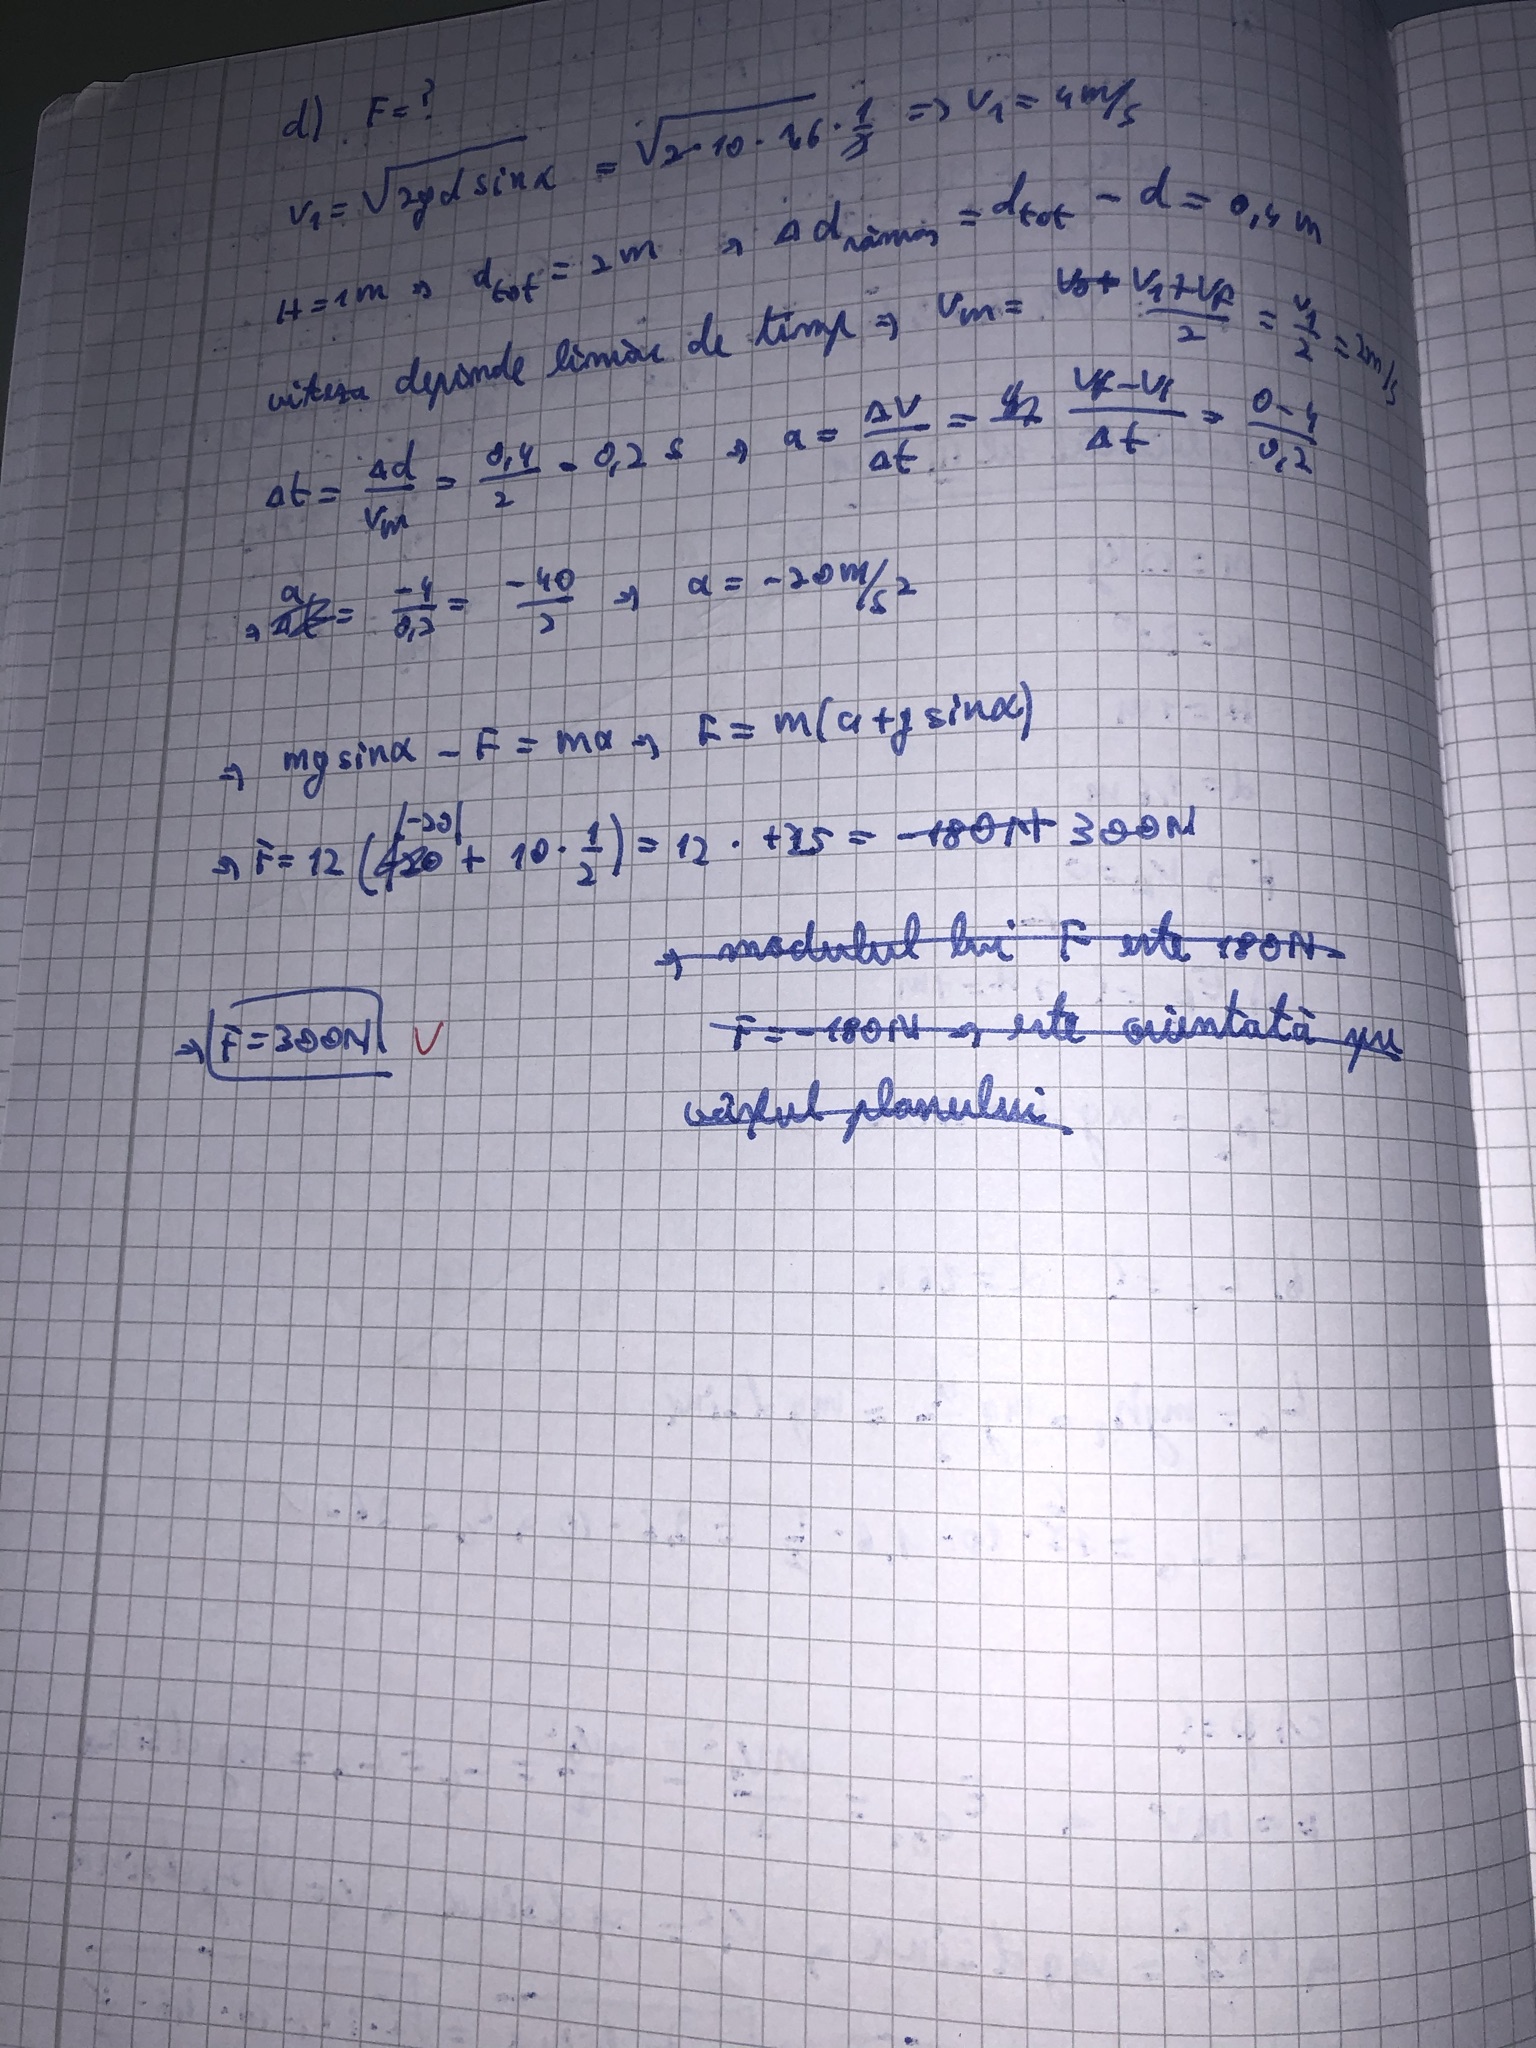 d) F = ?
v₁ = √2gd sinα = √2·10·1,6·1/2 => v₁ = 4 m/s
H = 1m => d_tot = 2m => Δd_rămas = d_tot - d = 0,4 m
viteza depinde liniar de timp => v_m = v₀ + v₁+v_f/2 = v₁/2 = 2m/s
Δt = Δd/v_m = 0,4/2 = 0,2 s => a = Δv/Δt = v_f-v₁/Δt = 0-4/0,2
=> a = -4/0,2 = -40/2 => a = -20 m/s²
=> mg sinα - F = ma => F = m(a+g sinα)
=> F = 12 (|-20| + 10·1/2) = 12 · +25 = -180N 300N
=> modulul lui F este 180N
F = -180N => este orientată pe
vârful planului
=> F = 300N V